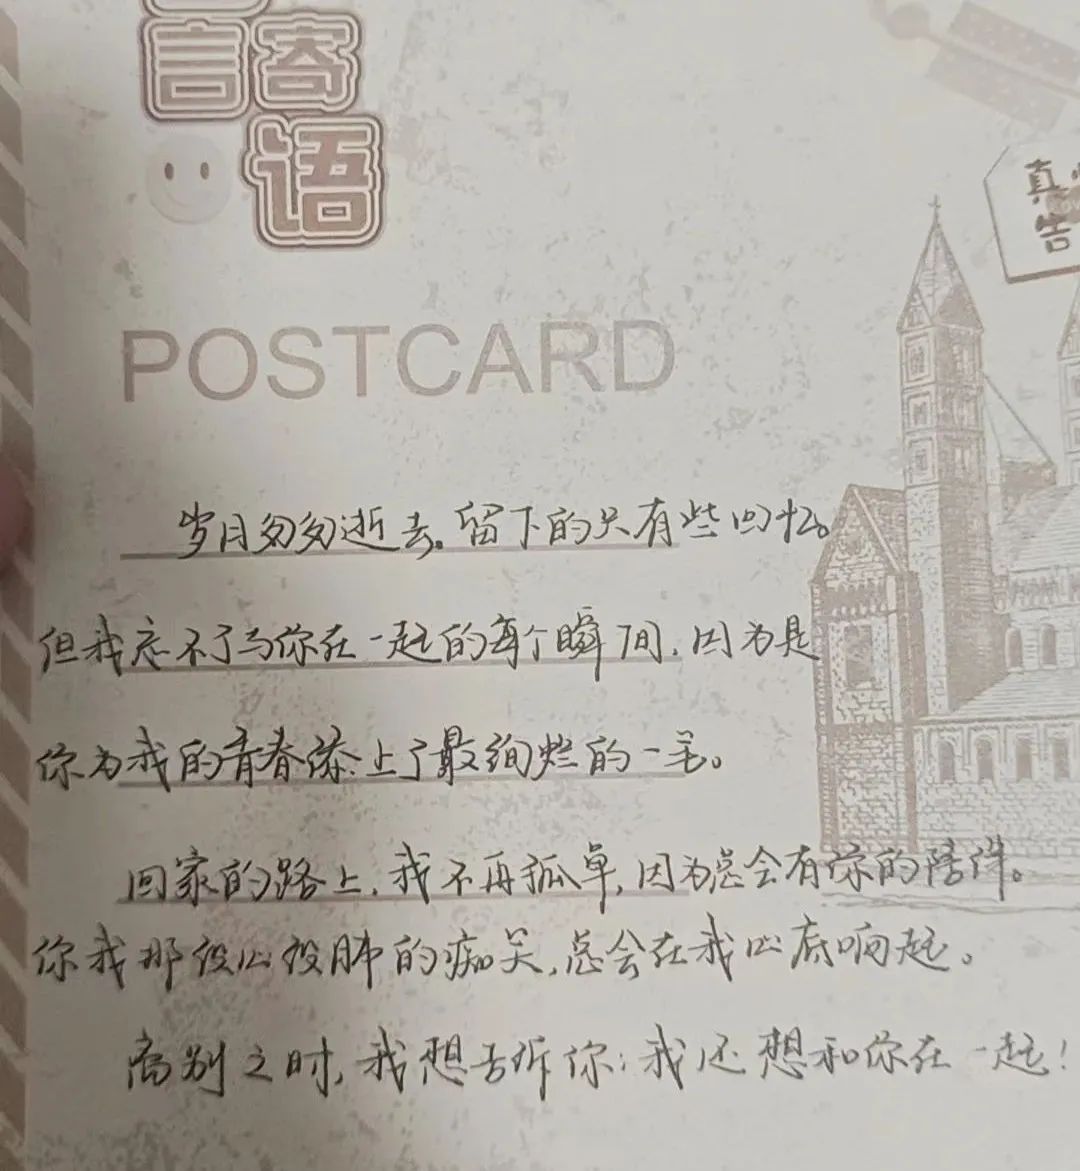 言寄
语
真
告
POSTCARD
岁月匆匆逝去。留下的只有些回忆。
但我忘不了与你在一起的每个瞬间,因为是
你为我的青春添上了最绚烂的一笔。
回家的路上,我不再孤单,因为总会有你的陪伴。
你我那没心没肺的痴笑,总会在我心底响起。
离别之时,我想告诉你:我还想和你在一起!